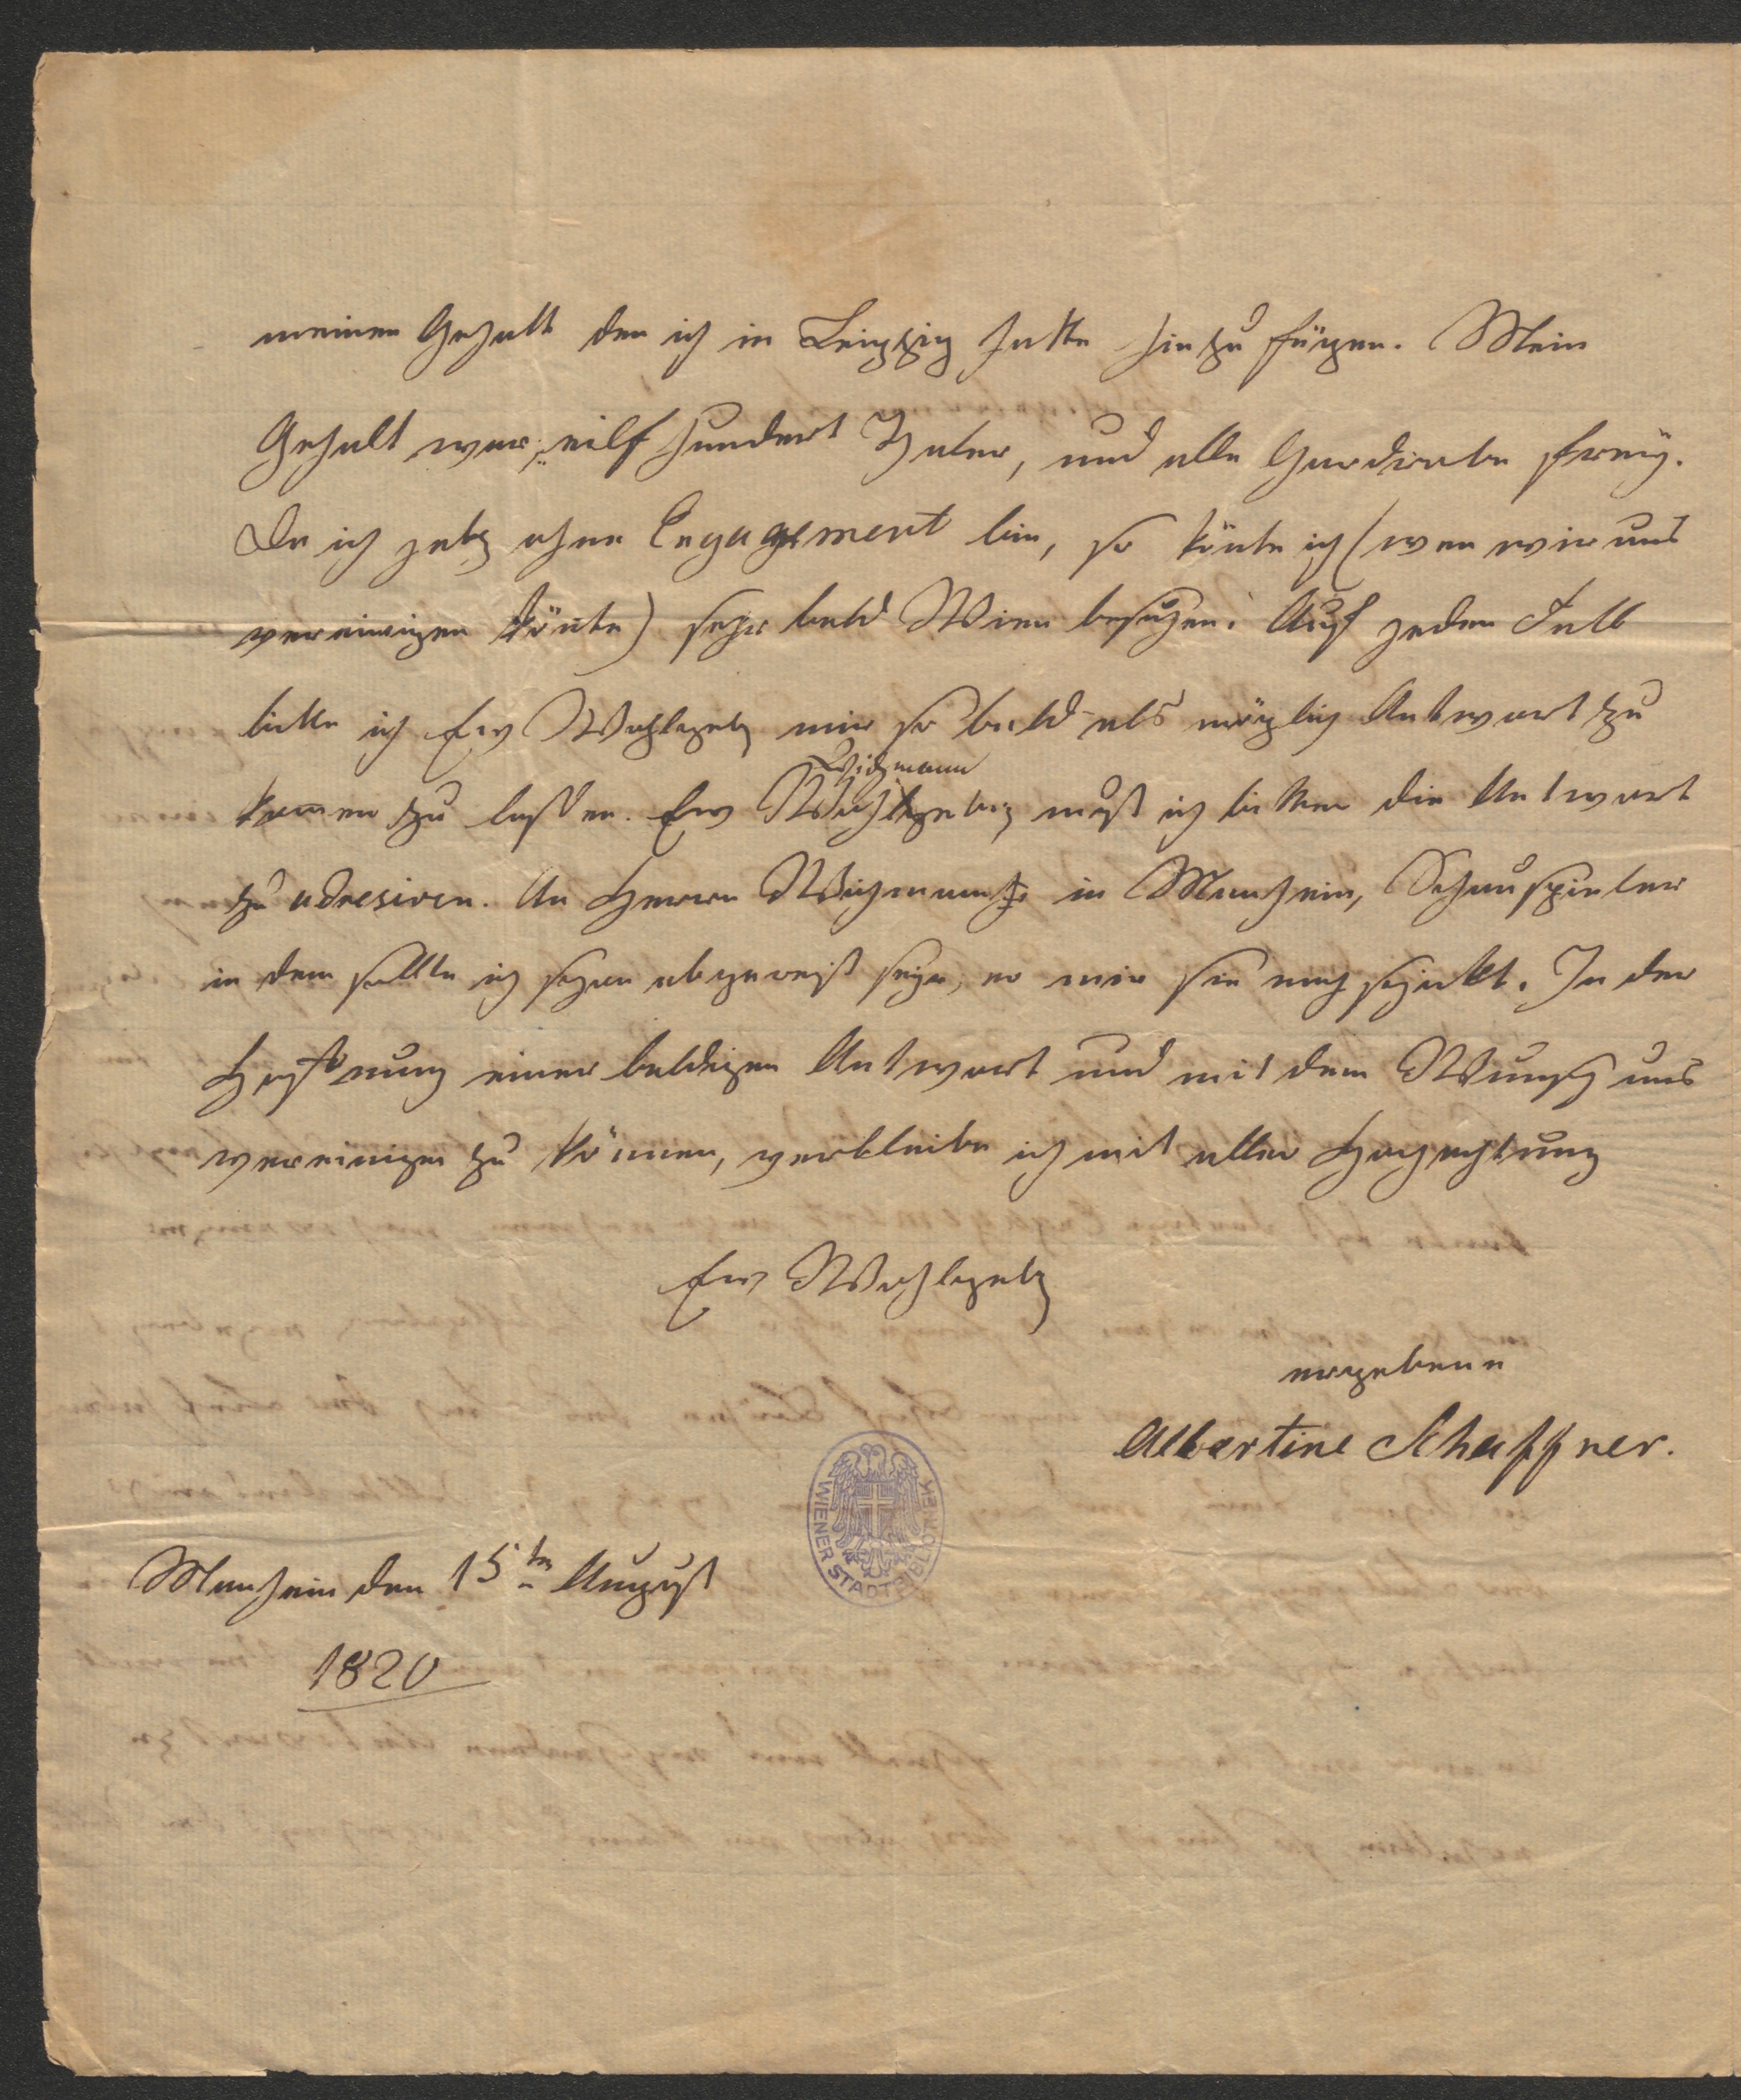 meinen Gehalt den ich in Leipzig hatte hinzu fügen. Mein
Gehalt war; eilf hundert Thaler, und alle Gardirobe freÿ.
Da ich jetz ohne Engagement bin, so könte ich (wen wir uns
vereinigen könte) sehr bald Wien besuchen. Auf jeden Fall
bitte ich Ew Wohlgeb mir so bald als möglich Antwort zu
komen zu lassen. Ew Wohlgeb muß ich bitten die Antwort
Wichmann
zu adresiren. An Herrn Wichmann in Manheim, Schauspieler
in dem sollte ich schon abgereißt seyn, er mir sie nach schickt. In der
Hoffnung einer baldigen Antwort und mit dem Wunsch uns
vereinigen zu können, verbleibe ich mit aller Hochachtung
Ew Wohlgeb
ergebene
Albertine Schaffner.
WIENER STADTBIBLIOTHEK
Manheim den 15ten August
1820